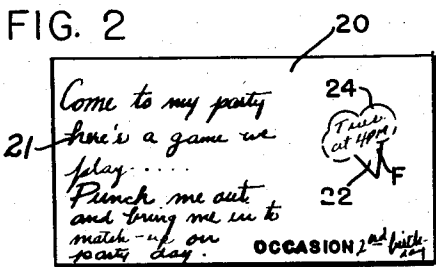 FIG. 2
20
Come to my party
24
here's a game we
Tues.
at 4PM!
21
play.....
22
F
Punch me out
and bring me in to
match-up on
party day.
OCCASION 2nd birth-
day